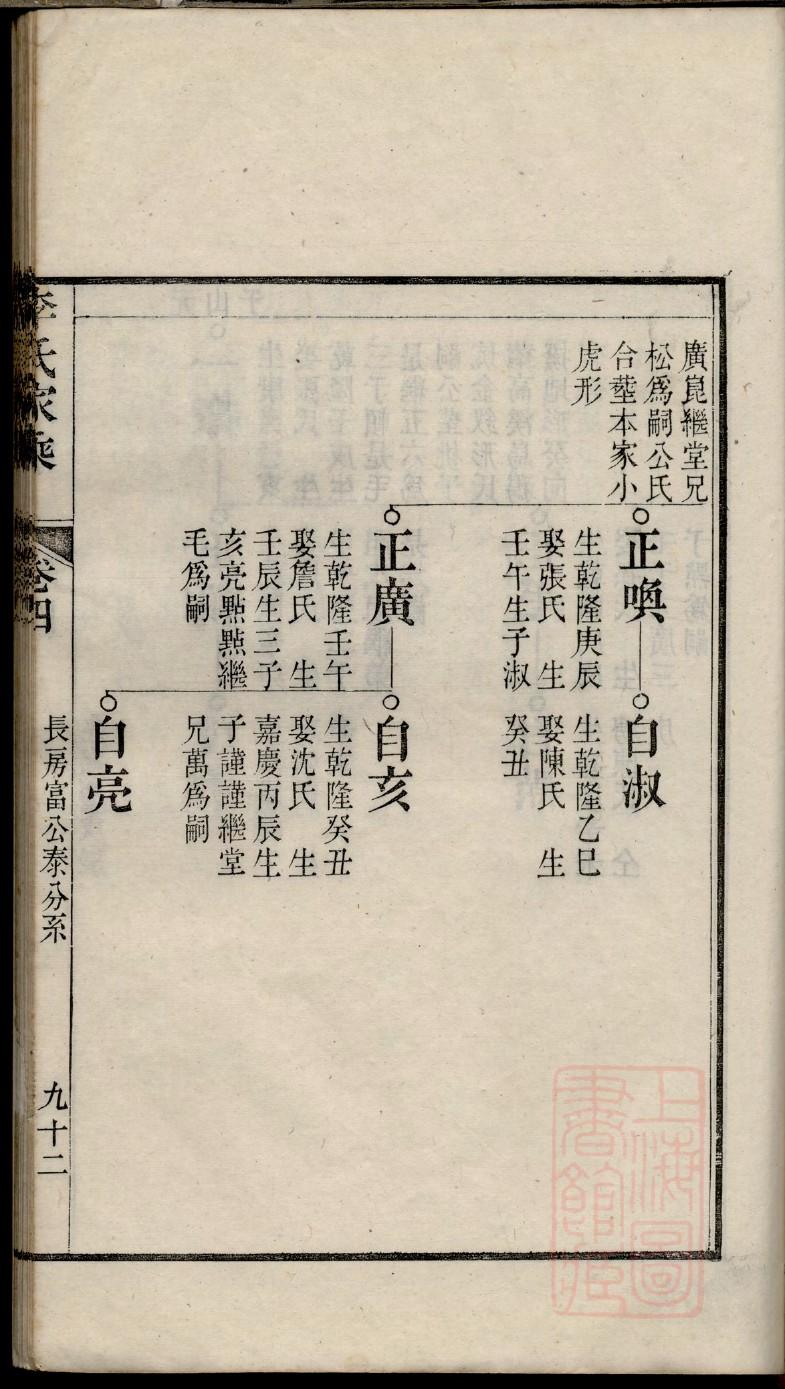 廣崑繼堂兄
松爲嗣公氏
合塟本家小
虎形
正喚
生乾隆庚辰
娶張氏 生
壬午生子淑
正廣
生乾隆壬午
娶詹氏 生
壬辰生三子
亥亮㸃㸃繼
毛爲嗣
自淑
生乾隆乙巳
娶陳氏 生
癸丑
自亥
生乾隆癸丑
娶沈氏 生
嘉慶丙辰生
子謹謹繼堂
兄萬爲嗣
自亮
李氏家乘
卷四
長房富公泰分系
九十二
上海圖書館藏